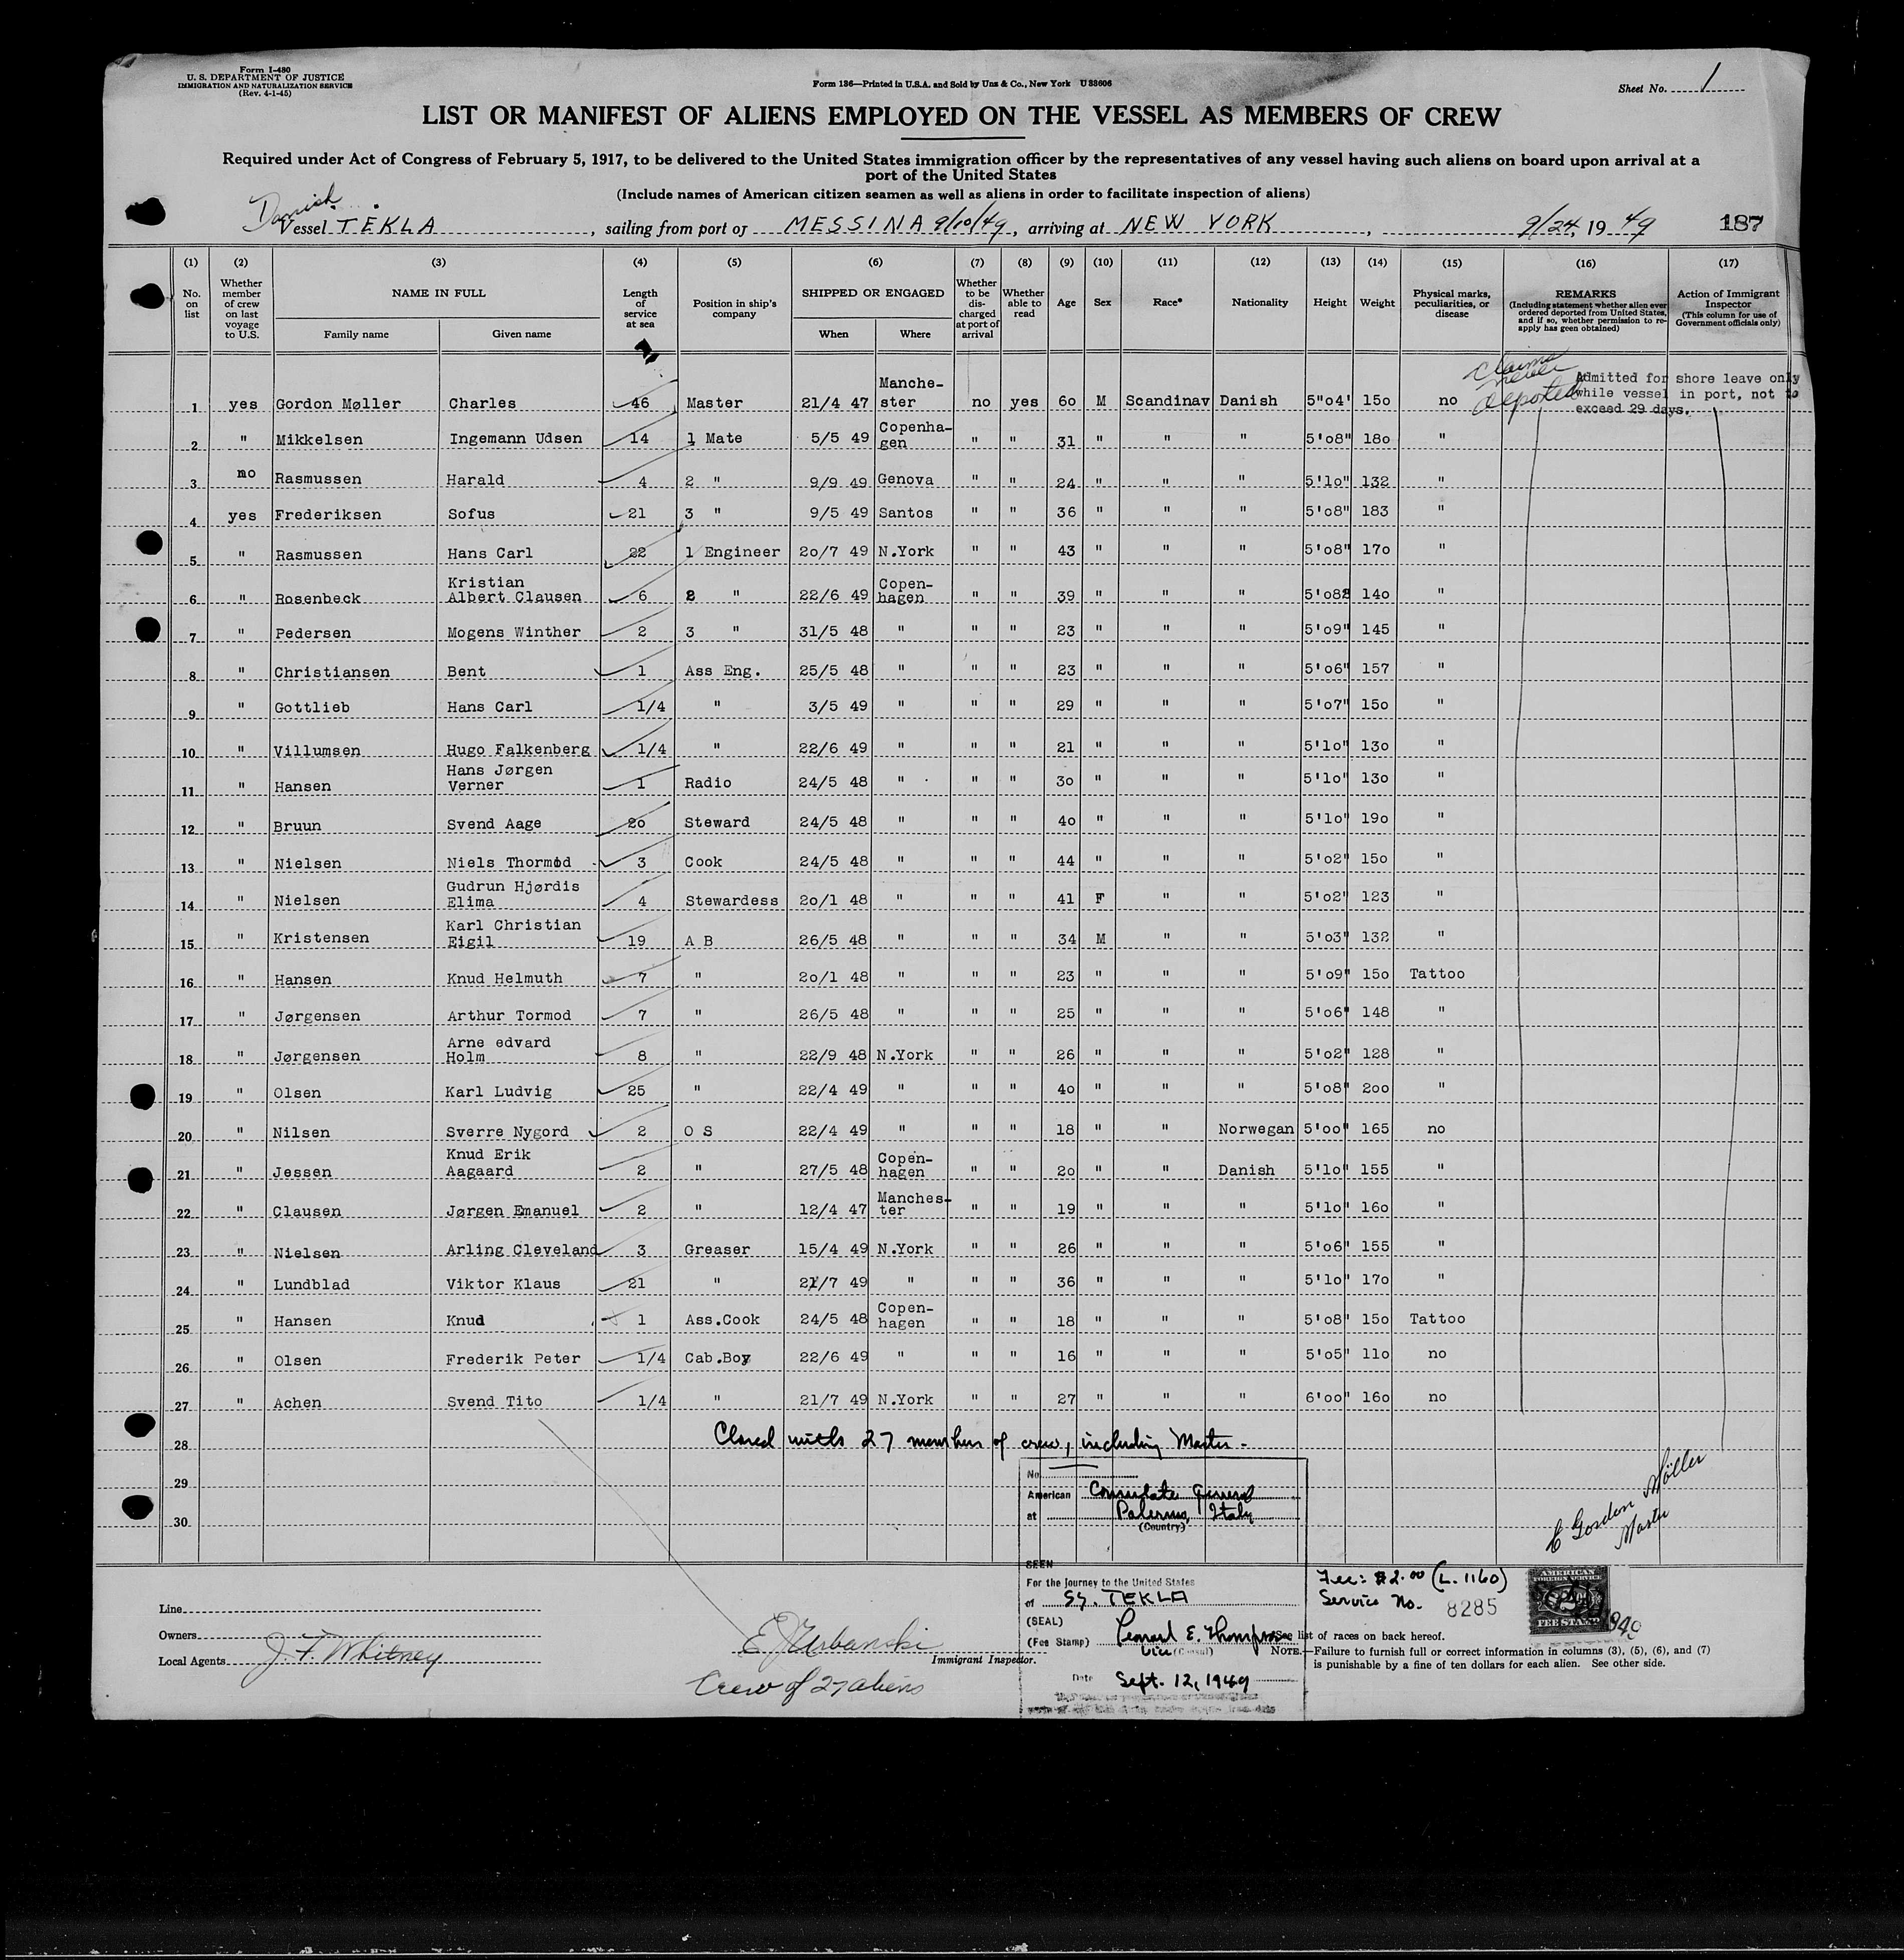 Form I-480
U. S. DEPARTMENT OF JUSTICE
IMMIGRATION AND NATURALIZATION SERVICE
(Rev. 4-1-45)
Form 136—Printed in U.S.A. and Sold by Unz & Co., New York U 33606
Sheet No. 1
LIST OR MANIFEST OF ALIENS EMPLOYED ON THE VESSEL AS MEMBERS OF CREW
Required under Act of Congress of February 5, 1917, to be delivered to the United States immigration officer by the representatives of any vessel having such aliens on board upon arrival at a
port of the United States
(Include names of American citizen seamen as well as aliens in order to facilitate inspection of aliens)
Danish
Vessel TEKLA, sailing from port of MESSINA 9/10/49, arriving at NEW YORK, 9/24, 19 49 187
(1) (2) (3) (4) (5) (6) (7) (8) (9) (10) (11) (12) (13) (14) (15) (16) (17)
No. on list
Whether member of crew on last voyage to U.S.
NAME IN FULL
Family name Given name
Length of service at sea
Position in ship's company
SHIPPED OR ENGAGED
When Where
Whether to be discharged at port of arrival
Whether able to read
Age
Sex
Race*
Nationality
Height
Weight
Physical marks, peculiarities, or disease
REMARKS
(Including statement whether alien ever ordered deported from United States, and if so, whether permission to reapply has geen obtained)
Action of Immigrant Inspector
(This column for use of Government officials only)
claims never deported
Admitted for shore leave only
while vessel in port, not to
exceed 29 days.
1 yes Gordon Møller Charles 46 Master 21/4 47 Manche-ster no yes 6o M Scandinav Danish 5"o4' 15o no
2 " Mikkelsen Ingemann Udsen 14 1 Mate 5/5 49 Copenha-gen " " 31 " " " 5'o8" 18o "
3 no Rasmussen Harald 4 2 " 9/9 49 Genova " " 24 " " " 5'lo" 132 "
4 yes Frederiksen Sofus 21 3 " 9/5 49 Santos " " 36 " " " 5'o8" 183 "
5 " Rasmussen Hans Carl 22 1 Engineer 2o/7 49 N.York " " 43 " " " 5'o8" 17o "
6 " Rosenbeck Kristian Albert Clausen 6 2 " 22/6 49 Copen-hagen " " 39 " " " 5'o8" 14o "
7 " Pedersen Mogens Winther 2 3 " 31/5 48 " " " 23 " " " 5'o9" 145 "
8 " Christiansen Bent 1 Ass Eng. 25/5 48 " " " 23 " " " 5'o6" 157 "
9 " Gottlieb Hans Carl 1/4 " 3/5 49 " " " 29 " " " 5'o7" 15o "
10 " Villumsen Hugo Falkenberg 1/4 " 22/6 49 " " " 21 " " " 5'lo" 13o "
11 " Hansen Hans Jørgen Verner 1 Radio 24/5 48 " " " 3o " " " 5'lo" 13o "
12 " Bruun Svend Aage 2o Steward 24/5 48 " " " 4o " " " 5'lo" 19o "
13 " Nielsen Niels Thormod 3 Cook 24/5 48 " " " 44 " " " 5'o2" 15o "
14 " Nielsen Gudrun Hjørdis Elima 4 Stewardess 2o/1 48 " " " 41 F " " 5'o2" 123 "
15 " Kristensen Karl Christian Eigil 19 A B 26/5 48 " " " 34 M " " 5'o3" 132 "
16 " Hansen Knud Helmuth 7 " 2o/1 48 " " " 23 " " " 5'o9" 15o Tattoo
17 " Jørgensen Arthur Tormod 7 " 26/5 48 " " " 25 " " " 5'o6" 148 "
18 " Jørgensen Arne edvard Holm 8 " 22/9 48 N.York " " 26 " " " 5'o2" 128 "
19 " Olsen Karl Ludvig 25 " 22/4 49 " " " 4o " " " 5'o8" 2oo "
20 " Nilsen Sverre Nygord 2 O S 22/4 49 " " " 18 " " Norwegan 5'oo" 165 no
21 " Jessen Knud Erik Aagaard 2 " 27/5 48 Copen-hagen " " 2o " " Danish 5'lo" 155 "
22 " Clausen Jørgen Emanuel 2 " 12/4 47 Manches-ter " " 19 " " " 5'lo" 16o "
23 " Nielsen Arling Cleveland 3 Greaser 15/4 49 N.York " " 26 " " " 5'o6" 155 "
24 " Lundblad Viktor Klaus 21 " 21/7 49 " " " 36 " " " 5'lo" 17o "
25 " Hansen Knud 1 Ass.Cook 24/5 48 Copen-hagen " " 18 " " " 5'o8" 15o Tattoo
26 " Olsen Frederik Peter 1/4 Cab.Boy 22/6 49 " " " 16 " " " 5'o5" 11o no
27 " Achen Svend Tito 1/4 " 21/7 49 N.York " " 27 " " " 6'oo" 16o no
28 Closed with 27 members of crew, including Master.
29
30
C Gordon Möller
Master
No.
American Consulate General
at Palermo, Italy
(Country)
SEEN
For the journey to the United States
of SS. TEKLA
(SEAL)
(Fee Stamp) Leonard E. Thompson
Vice (Consul)
Date Sept. 12, 1949
Fee: $2.00 (L. 1160)
Service No. 8285
AMERICAN
FOREIGN SERVICE
FEE STAMP
Line
Owners
Local Agents J. F. Whitney
E J Urbanski
Immigrant Inspector.
Crew of 27 aliens
*See list of races on back hereof.
NOTE.—Failure to furnish full or correct information in columns (3), (5), (6), and (7)
is punishable by a fine of ten dollars for each alien. See other side.